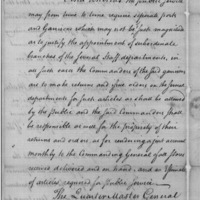 may from time to time require separate posts
and Garrisons which may not be of such magnitude
as to justify the appointment of subordinate
branches of the several Staff departments, in
such case the Commanders of the said garrisons
are to make returns and give orders on the proper
departments for such articles as shall be allowed
by the Public and the said Commanders shall
be responsible as well for the propriety of their
returns and orders as for rendering
monthly to the Commanding General of all stores
received delivered and on hand, and
of articles required for Public Service
The Quarter Master General